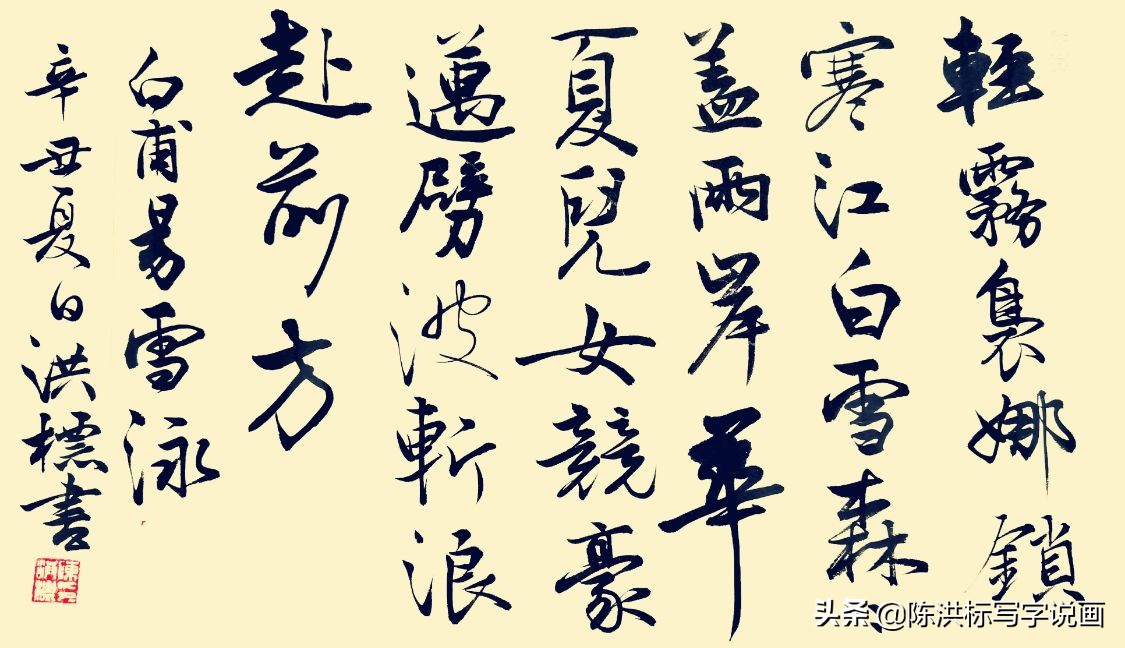 輕霧裊娜鎖
寒江白雪森
盖兩岸華
夏兒女競豪
邁劈波斬浪
赴前方
白甫易雪泳
辛丑夏日洪標書
头条 @陈洪标写字说画